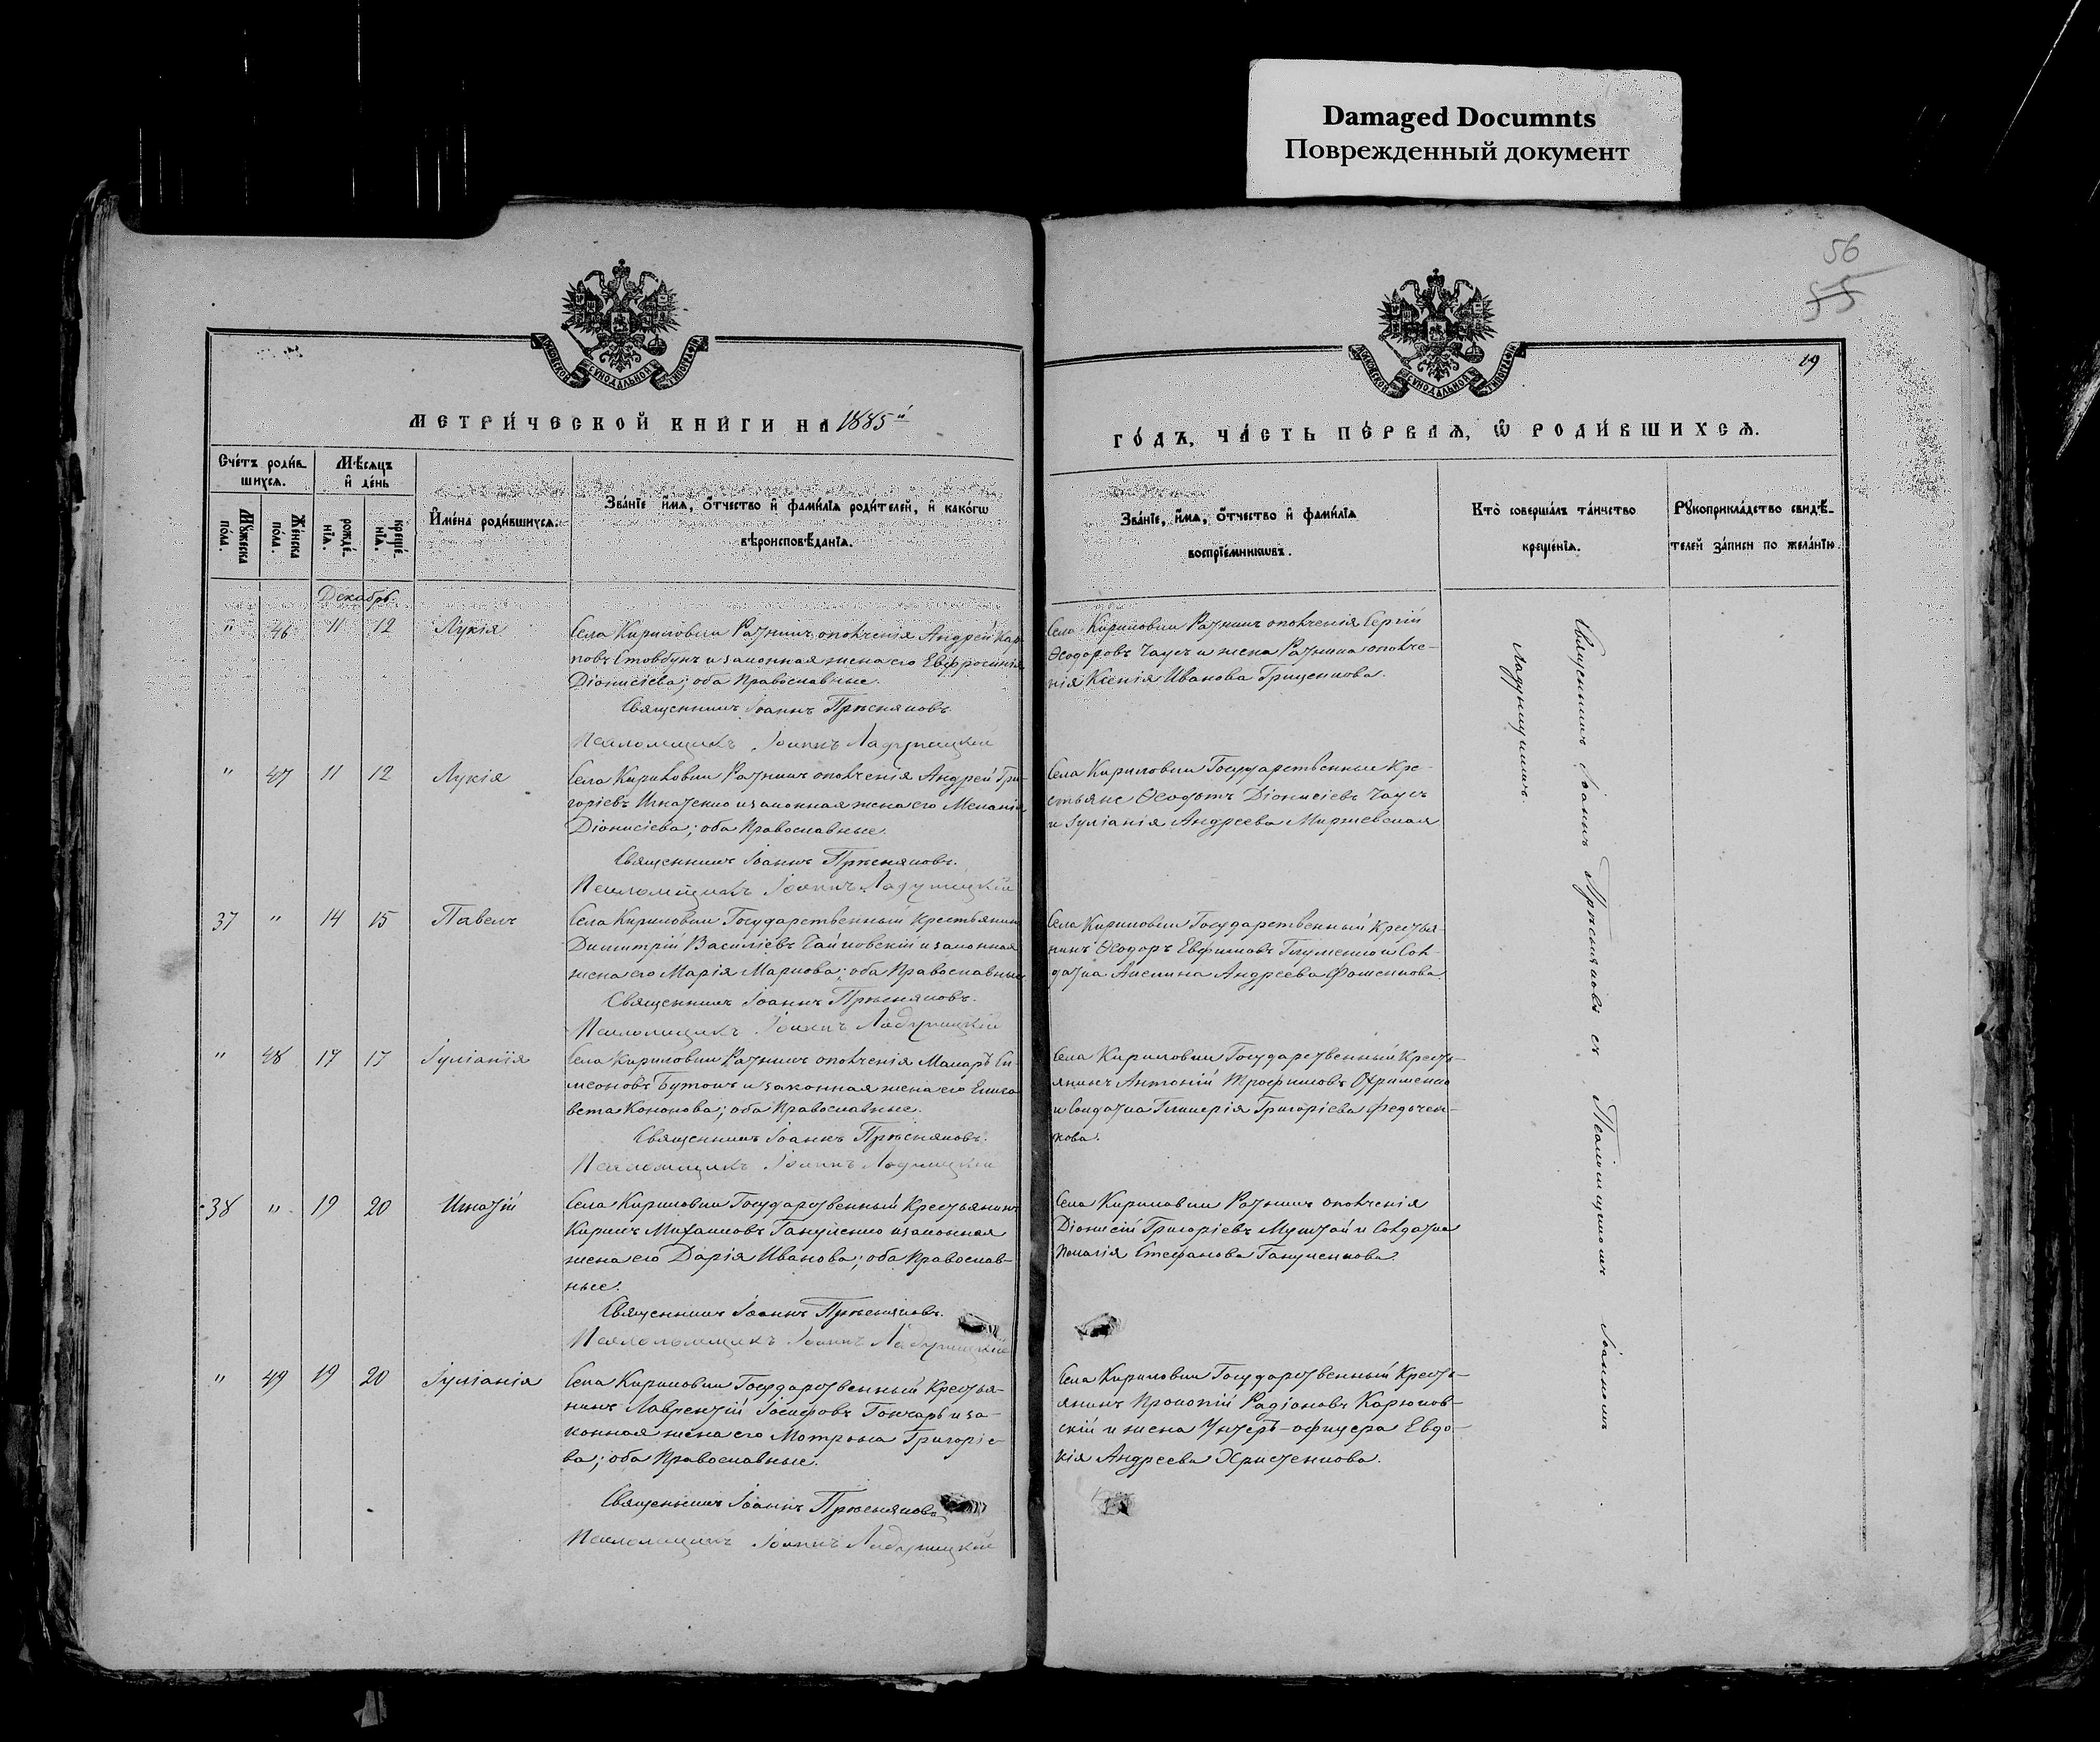 Damaged Documnts
Поврежденный документ
56
55
МОСКОВСКОЙ СѴНОДАЛЬНОЙ ТИПОГРАФІИ
МОСКОВСКОЙ СѴНОДАЛЬНОЙ ТИПОГРАФІИ
19
МЕТРИ́ЧЕСКОЙ КНИ́ГИ НА 1885й
ГО́ДЪ, ЧА́СТЬ ПЕ́РВАѦ, Ѽ РОДИ́ВШИХСѦ.
Сче́тъ роди́в-
шихсѧ.
Мꙋжеска по́ла.
Же́нска по́ла.
Мѣ́сѧцъ
и҆ де́нь
рожде́-
нїѧ.
креще́-
нїѧ.
И҆мена̀ роди́вшихсѧ.
Зва́нїе и҆́мѧ, ѻ҆́тчество и҆ фами́лїѧ роди́телей, и҆ како́гѡ
вѣроисповѣ́данїѧ.
Зва́нїе, и҆́мѧ, ѻ҆́тчество и҆ фами́лїѧ
воспрїе́мникѡвъ.
Кто̀ соверша́лъ та́инство
креще́нїѧ.
Рꙋкоприкла́дство свидѣ́-
телей за́писи по жела́нїю.
Декабрь.
" 46 11 12 Лукія
Села Кириловки Ратникъ ополченія Андрей Кар-
повъ Стовбунъ и законная жена его Евфросинія
Діонисіева; оба Православные.
Священникъ Іоаннъ Прѣсняковъ.
Псаломщикъ Іоаннъ Ладуницкій
Села Кириловки Ратникъ ополченія Сергій
Ѳеодоровъ Чаусъ и жена Ратника ополче-
нія Ксенія Иванова Гриценкова.
" 47 11 12 Лукія
Села Кириловки Ратникъ ополченія Андрей Гри-
горіевъ Игнатенко и законная жена его Меланія
Діонисіева; оба Православные.
Священникъ Іоаннъ Прѣсняковъ.
Псаломщикъ Іоаннъ Ладуницкій
Села Кириловки Государственные Кре-
стьяне Ѳеодотъ Діонисіевъ Чаусъ
и Іуліанія Андреева Миржевская
37 " 14 15 Павелъ
Села Кириловки Государственный Крестьянинъ
Димитрій Василіевъ Чайковскій и законная
жена его Марія Маркова; оба Православные
Священникъ Іоаннъ Прѣсняковъ.
Псаломщикъ Іоаннъ Ладуницкій
Села Кириловки Государственный Крестья-
нинъ Ѳеодоръ Евфимовъ Глуменко и Сол-
датка Акилина Андреева Фоменкова.
" 48 17 17 Іуліанія
Села Кириловки Ратникъ ополченія Макаръ Си-
меоновъ Бутокъ и законная жена его Елиса-
вета Кононова; оба Православные.
Священникъ Іоаннъ Прѣсняковъ.
Псаломщикъ Іоаннъ Ладуницкій
Села Кириловки Государственный Кресть-
янинъ Антоній Трофимовъ Охрименко
и Солдатка Гликерія Григоріева Федочен-
кова.
38 " 19 20 Игнатій
Села Кириловки Государственный Крестьянинъ
Кирилъ Михаиловъ Ганущенко и законная
жена его Дарія Иванова; оба Православ-
ные.
Священникъ Іоаннъ Прѣсняковъ.
Псаломщикъ Іоаннъ Ладуницкій
Села Кириловки Ратникъ ополченія
Діонисій Григоріевъ и Солдатка
Пелагія Стефанова
" 49 19 20 Іуліанія
Села Кириловки Государственный Крестья-
нинъ Лаврентій Іосифовъ Гончаръ и за-
конная жена его Мотрона Григоріе-
ва; оба Православные.
Священникъ Іоаннъ Прѣсняковъ
Псаломщикъ Іоаннъ Ладуницкій
Села Кириловки Государственный Кресть-
янинъ Прокопій Радіоновъ Карюков-
скій и жена Унтеръ-офицера Евдо-
кія Андреева Христенкова.
Священникъ Іоаннъ Прѣсняковъ съ Псаломщикомъ Іоанномъ
Ладуницкимъ.